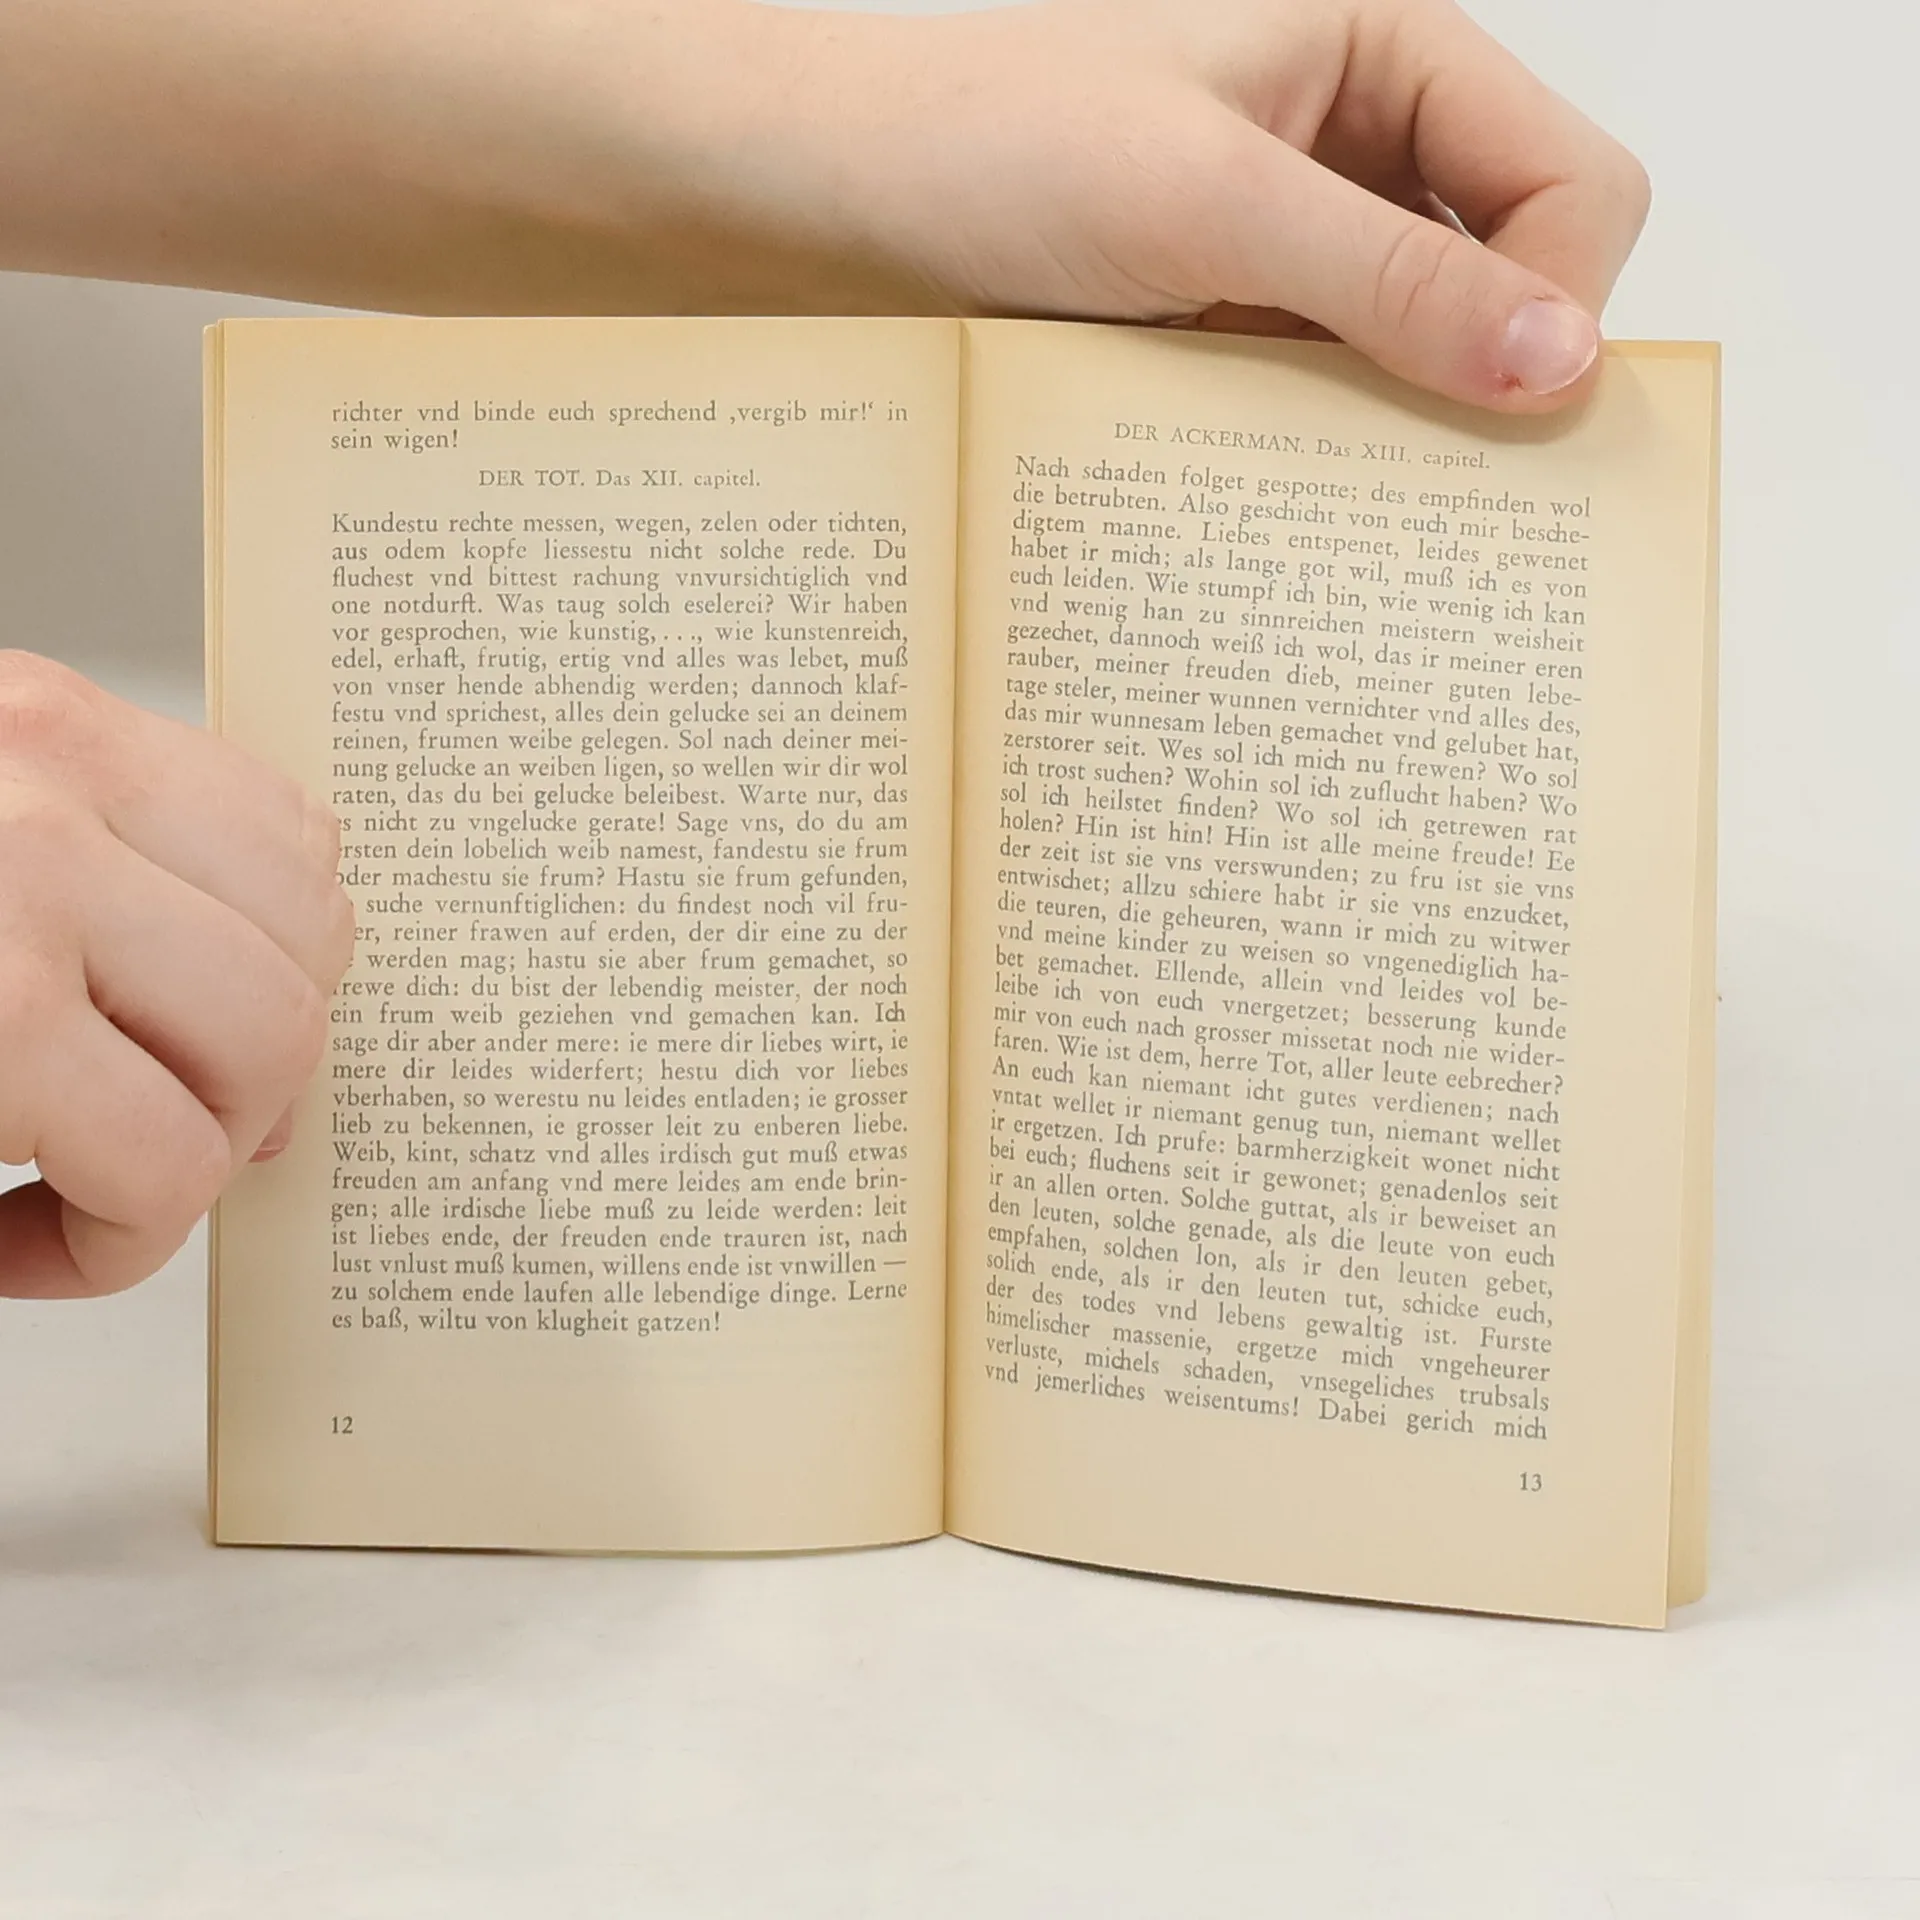 richter vnd binde euch sprechend ‚vergib mir!‘ in
sein wigen!
DER TOT. Das XII. capitel.
Kundestu rechte messen, wegen, zelen oder tichten,
aus odem kopfe liessestu nicht solche rede. Du
fluchest vnd bittest rachung vnvursichtiglich vnd
one notdurft. Was taug solch eselerei? Wir haben
vor gesprochen, wie kunstig, . . ., wie kunstenreich,
edel, erhaft, frutig, ertig vnd alles was lebet, muß
von vnser hende abhendig werden; dannoch klaf-
festu vnd sprichest, alles dein gelucke sei an deinem
reinen, frumen weibe gelegen. Sol nach deiner mei-
nung gelucke an weiben ligen, so wellen wir dir wol
raten, das du bei gelucke beleibest. Warte nur, das
nicht zu vngelucke gerate! Sage vns, do du am
dein lobelich weib namest, fandestu sie frum
machestu sie frum? Hastu sie frum gefunden,
suche vernunftiglichen: du findest noch vil fru-
reiner frawen auf erden, der dir eine zu der
werden mag; hastu sie aber frum gemachet, so
dich: du bist der lebendig meister, der noch
ein frum weib geziehen vnd gemachen kan. Ich
sage dir aber ander mere: ie mere dir liebes wirt, ie
mere dir leides widerfert; hestu dich vor liebes
vberhaben, so werestu nu leides entladen; ie grosser
lieb zu bekennen, ie grosser leit zu enberen liebe.
Weib, kint, schatz vnd alles irdisch gut muß etwas
freuden am anfang vnd mere leides am ende brin-
gen; alle irdische liebe muß zu leide werden: leit
ist liebes ende, der freuden ende trauren ist, nach
lust vnlust muß kumen, willens ende ist vnwillen —
zu solchem ende laufen alle lebendige dinge. Lerne
es baß, wiltu von klugheit gatzen!
12
DER ACKERMAN. Das XIII. capitel.
Nach schaden folget gespotte; des empfinden wol
die betrubten. Also geschicht von euch mir besche-
digtem manne. Liebes entspenet, leides gewenet
habet ir mich; als lange got wil, muß ich es von
euch leiden. Wie stumpf ich bin, wie wenig ich kan
vnd wenig han zu sinnreichen meistern weisheit
gezechet, dannoch weiß ich wol, das ir meiner eren
rauber, meiner freuden dieb, meiner guten lebe-
tage steler, meiner wunnen vernichter vnd alles des,
das mir wunnesam leben gemachet vnd gelubet hat,
zerstorer seit. Wes sol ich mich nu frewen? Wo sol
ich trost suchen? Wohin sol ich zuflucht haben? Wo
sol ich heilstet finden? Wo sol ich getrewen rat
holen? Hin ist hin! Hin ist alle meine freude! Ee
der zeit ist sie vns verswunden; zu fru ist sie vns
entwischet; allzu schiere habt ir sie vns enzucket,
die teuren, die geheuren, wann ir mich zu witwer
vnd meine kinder zu weisen so vngenediglich ha-
bet gemachet. Ellende, allein vnd leides vol be-
leibe ich von euch vnergetzet; besserung kunde
mir von euch nach grosser missetat noch nie wider-
faren. Wie ist dem, herre Tot, aller leute eebrecher?
An euch kan niemant icht gutes verdienen; nach
vntat wellet ir niemant genug tun, niemant wellet
ir ergetzen. Ich prufe: barmherzigkeit wonet nicht
bei euch; fluchens seit ir gewonet; genadenlos seit
ir an allen orten. Solche guttat, als ir beweiset an
den leuten, solche genade, als die leute von euch
empfahen, solchen lon, als ir den leuten gebet,
solich ende, als ir den leuten tut, schicke euch,
der des todes vnd lebens gewaltig ist. Furste
himelischer massenie, ergetze mich vngeheurer
verluste, michels schaden, vnsegeliches trubsals
vnd jemerliches weisentums! Dabei gerich mich
13